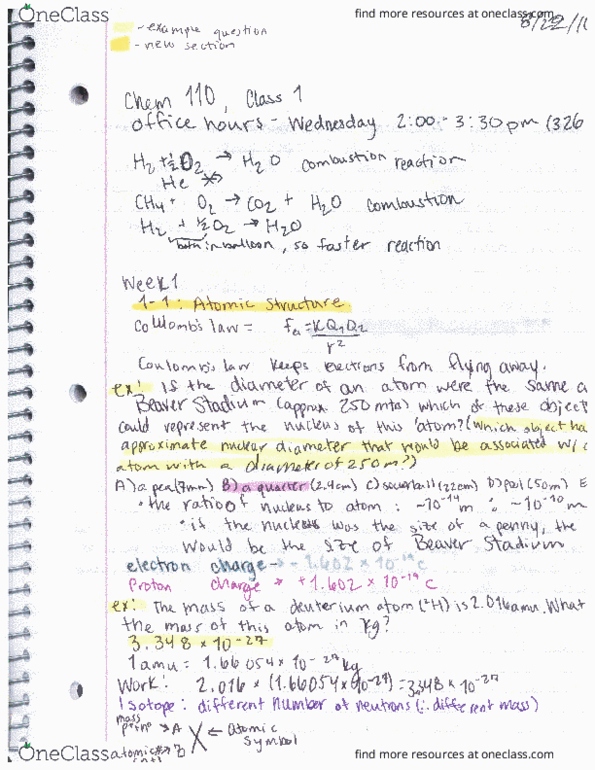 OneClass find more resources at oneclass.com
8/22/16
- example question
- new section
Chem 110, Class 1
office hours - Wednesday 2:00 - 3:30 pm (326
H2 + ½O2 → H2O combustion reaction
He
CH4 + O2 → CO2 + H2O combustion
H2 + ½O2 → H2O
both in balloon, so faster reaction
Week 1
1-1: Atomic Structure
Coulomb's law = = KQ1Q2
r²
Coulomb's law keeps electrons from flying away.
ex: If the diameter of an atom were the same a
Beaver Stadium (approx. 250 mtrs) which of these object
could represent the nucleus of this atom? (which object ha
approximate nuclear diameter that would be associated w/
atom with a diameter of 250m?)
A) a pea (7mm) B) a quarter (2.4cm) C) soccerball (22cm) D) pool (50m) E
• the ratio of nucleus to atom : ~10⁻¹⁴ m : ~10⁻¹⁰ m
• if the nucleus was the size of a penny, the
would be the size of Beaver Stadium
electron charge → - 1.602 × 10⁻¹⁹ C
Proton charge → +1.602 × 10⁻¹⁹ C
ex: The mass of a deuterium atom (²H) is 2.016amu. What
the mass of this atom in kg?
3.348 × 10⁻²⁷
1 amu = 1.66054 × 10⁻²⁷ kg
Work: 2.016 × (1.66054 × 10⁻²⁷) = 3.348 × 10⁻²⁷
Isotope: different number of neutrons (∴ different mass)
mass
→ A X ← Atomic
symbol
OneClass atomic # → Z find more resources at oneclass.com